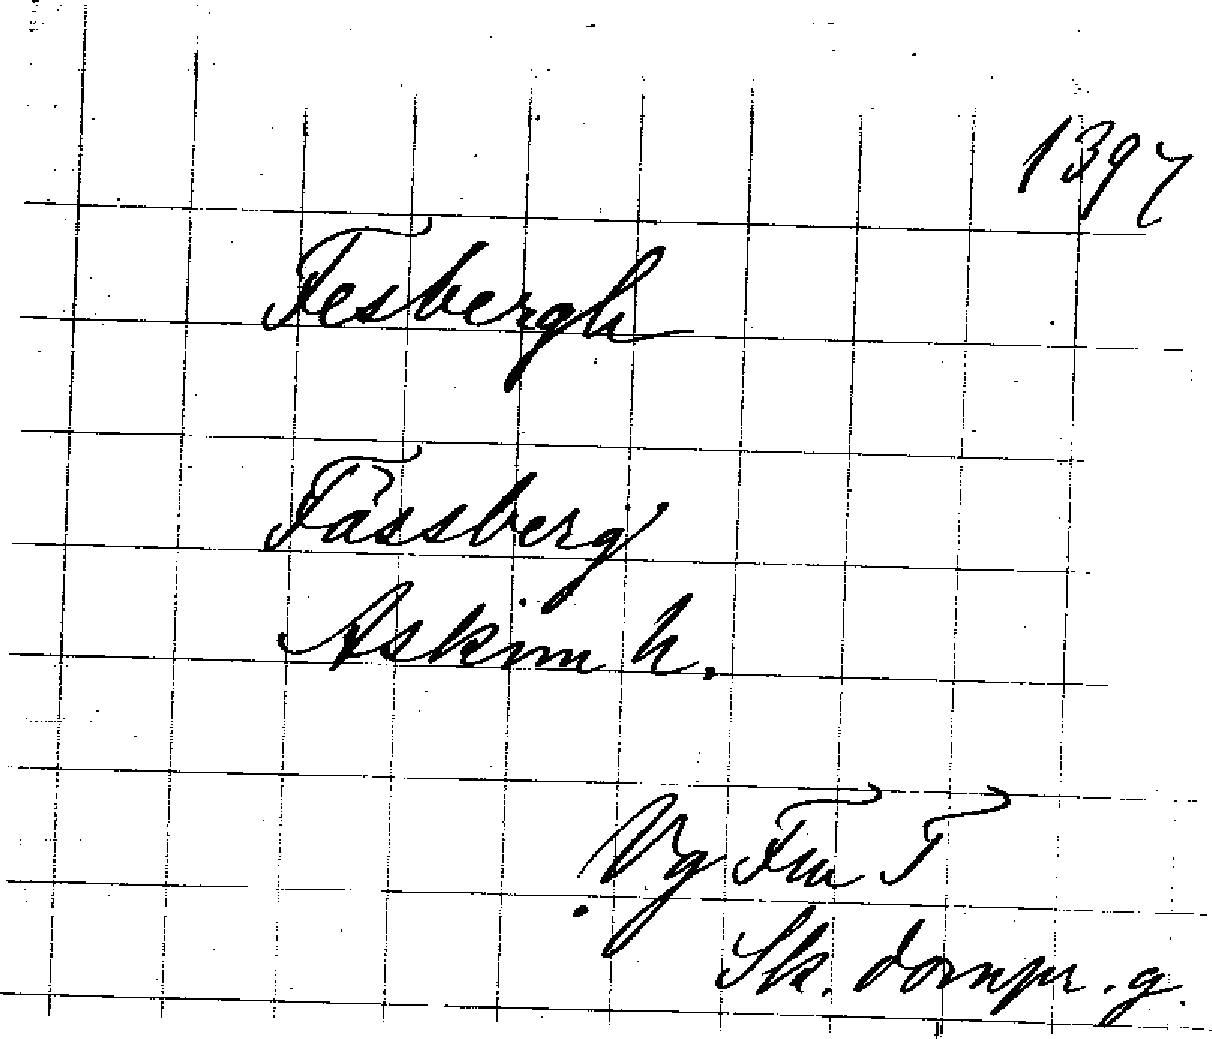 1397
Fesbergh
Fässberg
Askim h.
Vg Fru I
Sk. dompr. g.